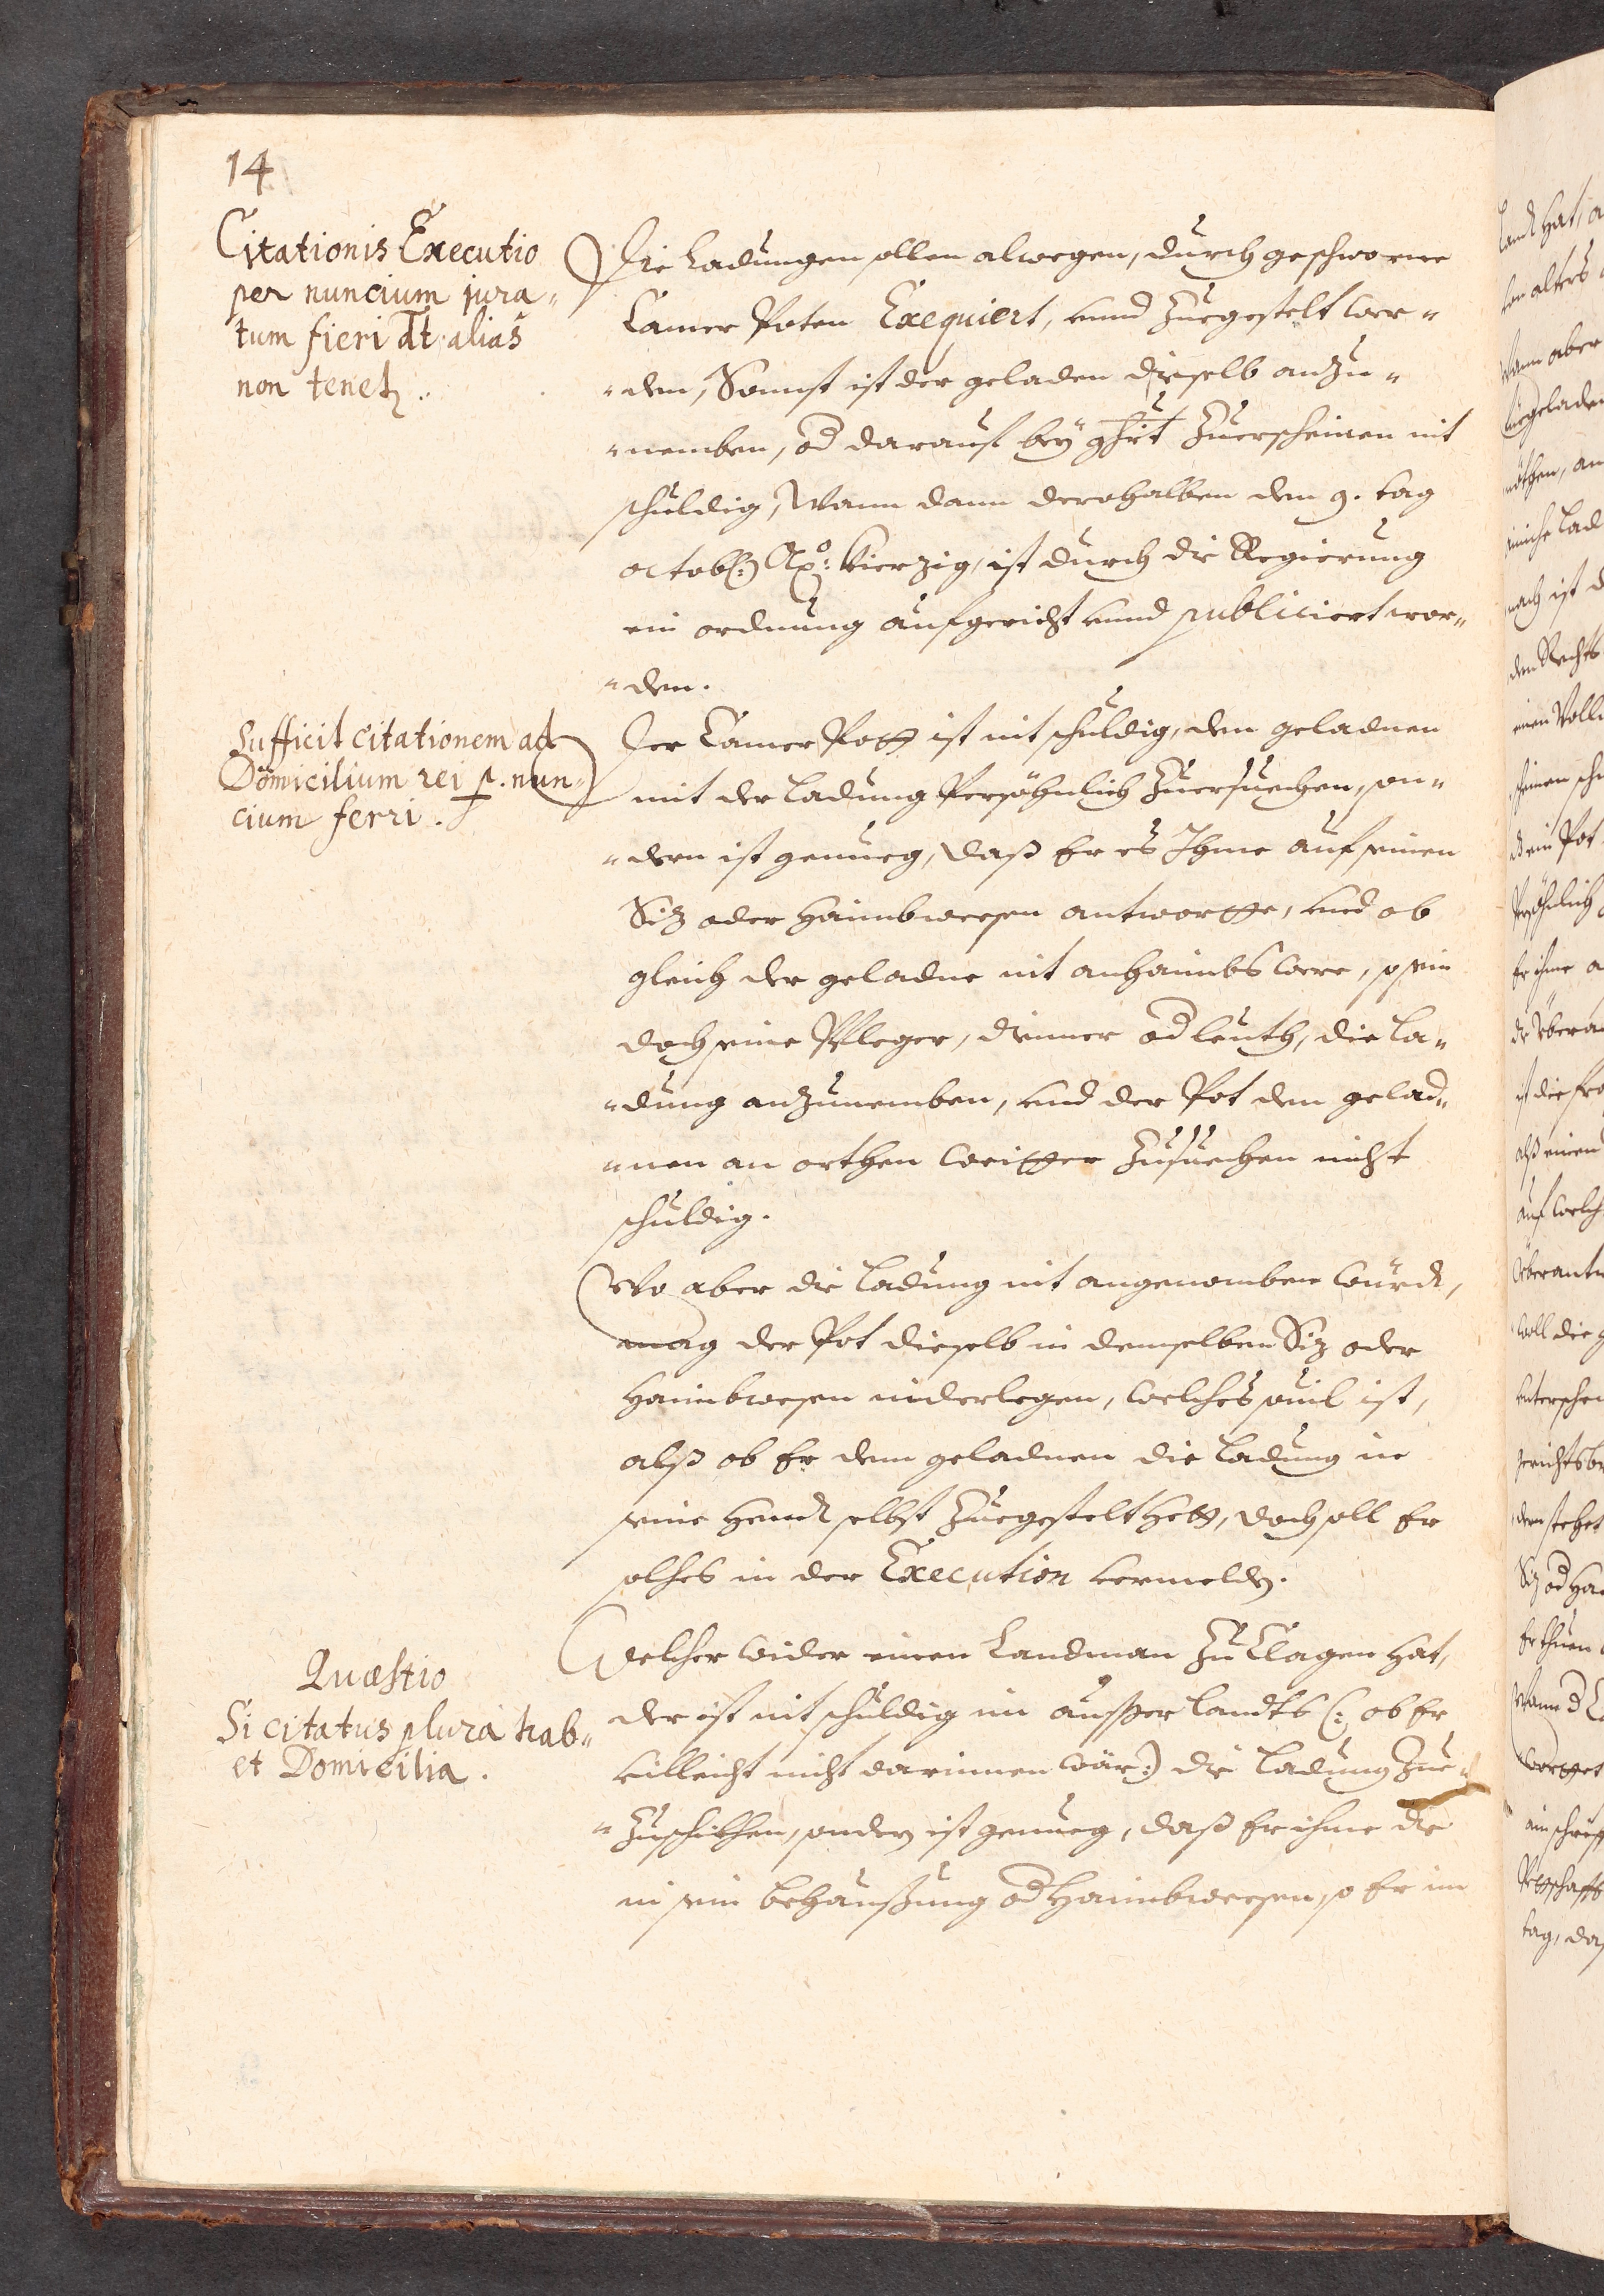 14
Citationis Executio
per nuncium jura„
tum fieri dt. alias
non tenet.
Die Ladungen sollen alwegen, durch geschworne
Camer Poten Exequiert, vnnd Zuegestelt wer„
„den, Sonnst ist der geladen dieselb anzu„
„nemben, od darauf bey ghrt Zuerscheinen nit
schuldig, Wann dann derohalben den 9. tag
octob: Ao: vierzig, ist durch die Regierung
ein ordnung aufgericht vnnd publiciert wor„
„den.
Sufficit citationem ad
Domicilium rei p. nun„
cium ferri.
Der Camer Pott ist nit schuldig, den geladnen
mit der Ladung Persöhnlich Zuersuechen, son„
„dern ist genueg, daß Er es Ihme auf seinen
Siz oder Haimbwesen antwortte, vnd ob
gleich der geladne nit anhaimbs were, so sein
doch seine Pfleger, diener od leuth, die La„
„dung anzunemben, vnd der Pot den gelad„
„nen an orthen weitter Zusuechen nicht
schuldig.
Wo aber die Ladung nit angenomben wurd,
mag der Pot dieselb in demselben Siz oder
Haimbwesen niderlegen, welches souil ist,
alß ob Er dem geladnen die Ladung in
seine Hendt selbst Zuegestelt hett, doch soll Er
solches in der Execution vermelden.
Quæstio
Si citatus plura hab„
et Domicilia.
Welcher wider einen Landman Zu Clagen hat,
der ist nit schuldig im ausser landts (: ob Er
villeicht nicht darinnen wär:) die Ladung Zue„
„Zuschikhen, sondern ist genueg, daß Er ihme die
in sein behaußung od Haimbwesen, so Er im